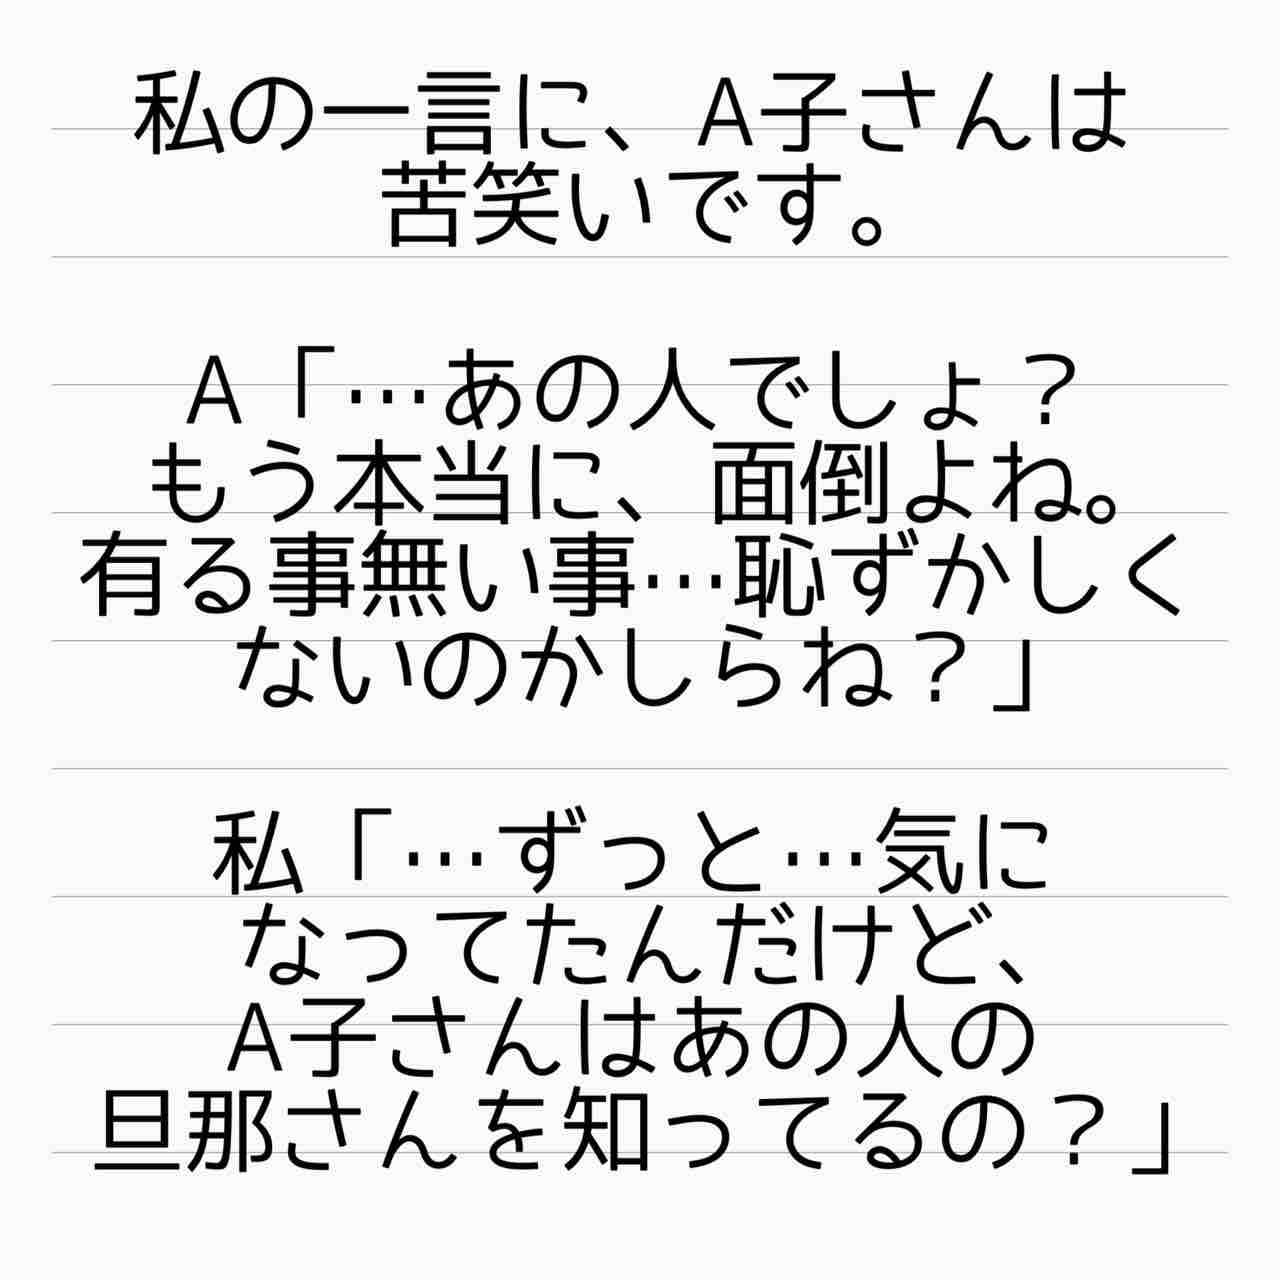 私の一言に、A子さんは
苦笑いです。
A「…あの人でしょ？
もう本当に、面倒よね。
有る事無い事…恥ずかしく
ないのかしらね？」
私「…ずっと…気に
なってたんだけど、
A子さんはあの人の
旦那さんを知ってるの？」